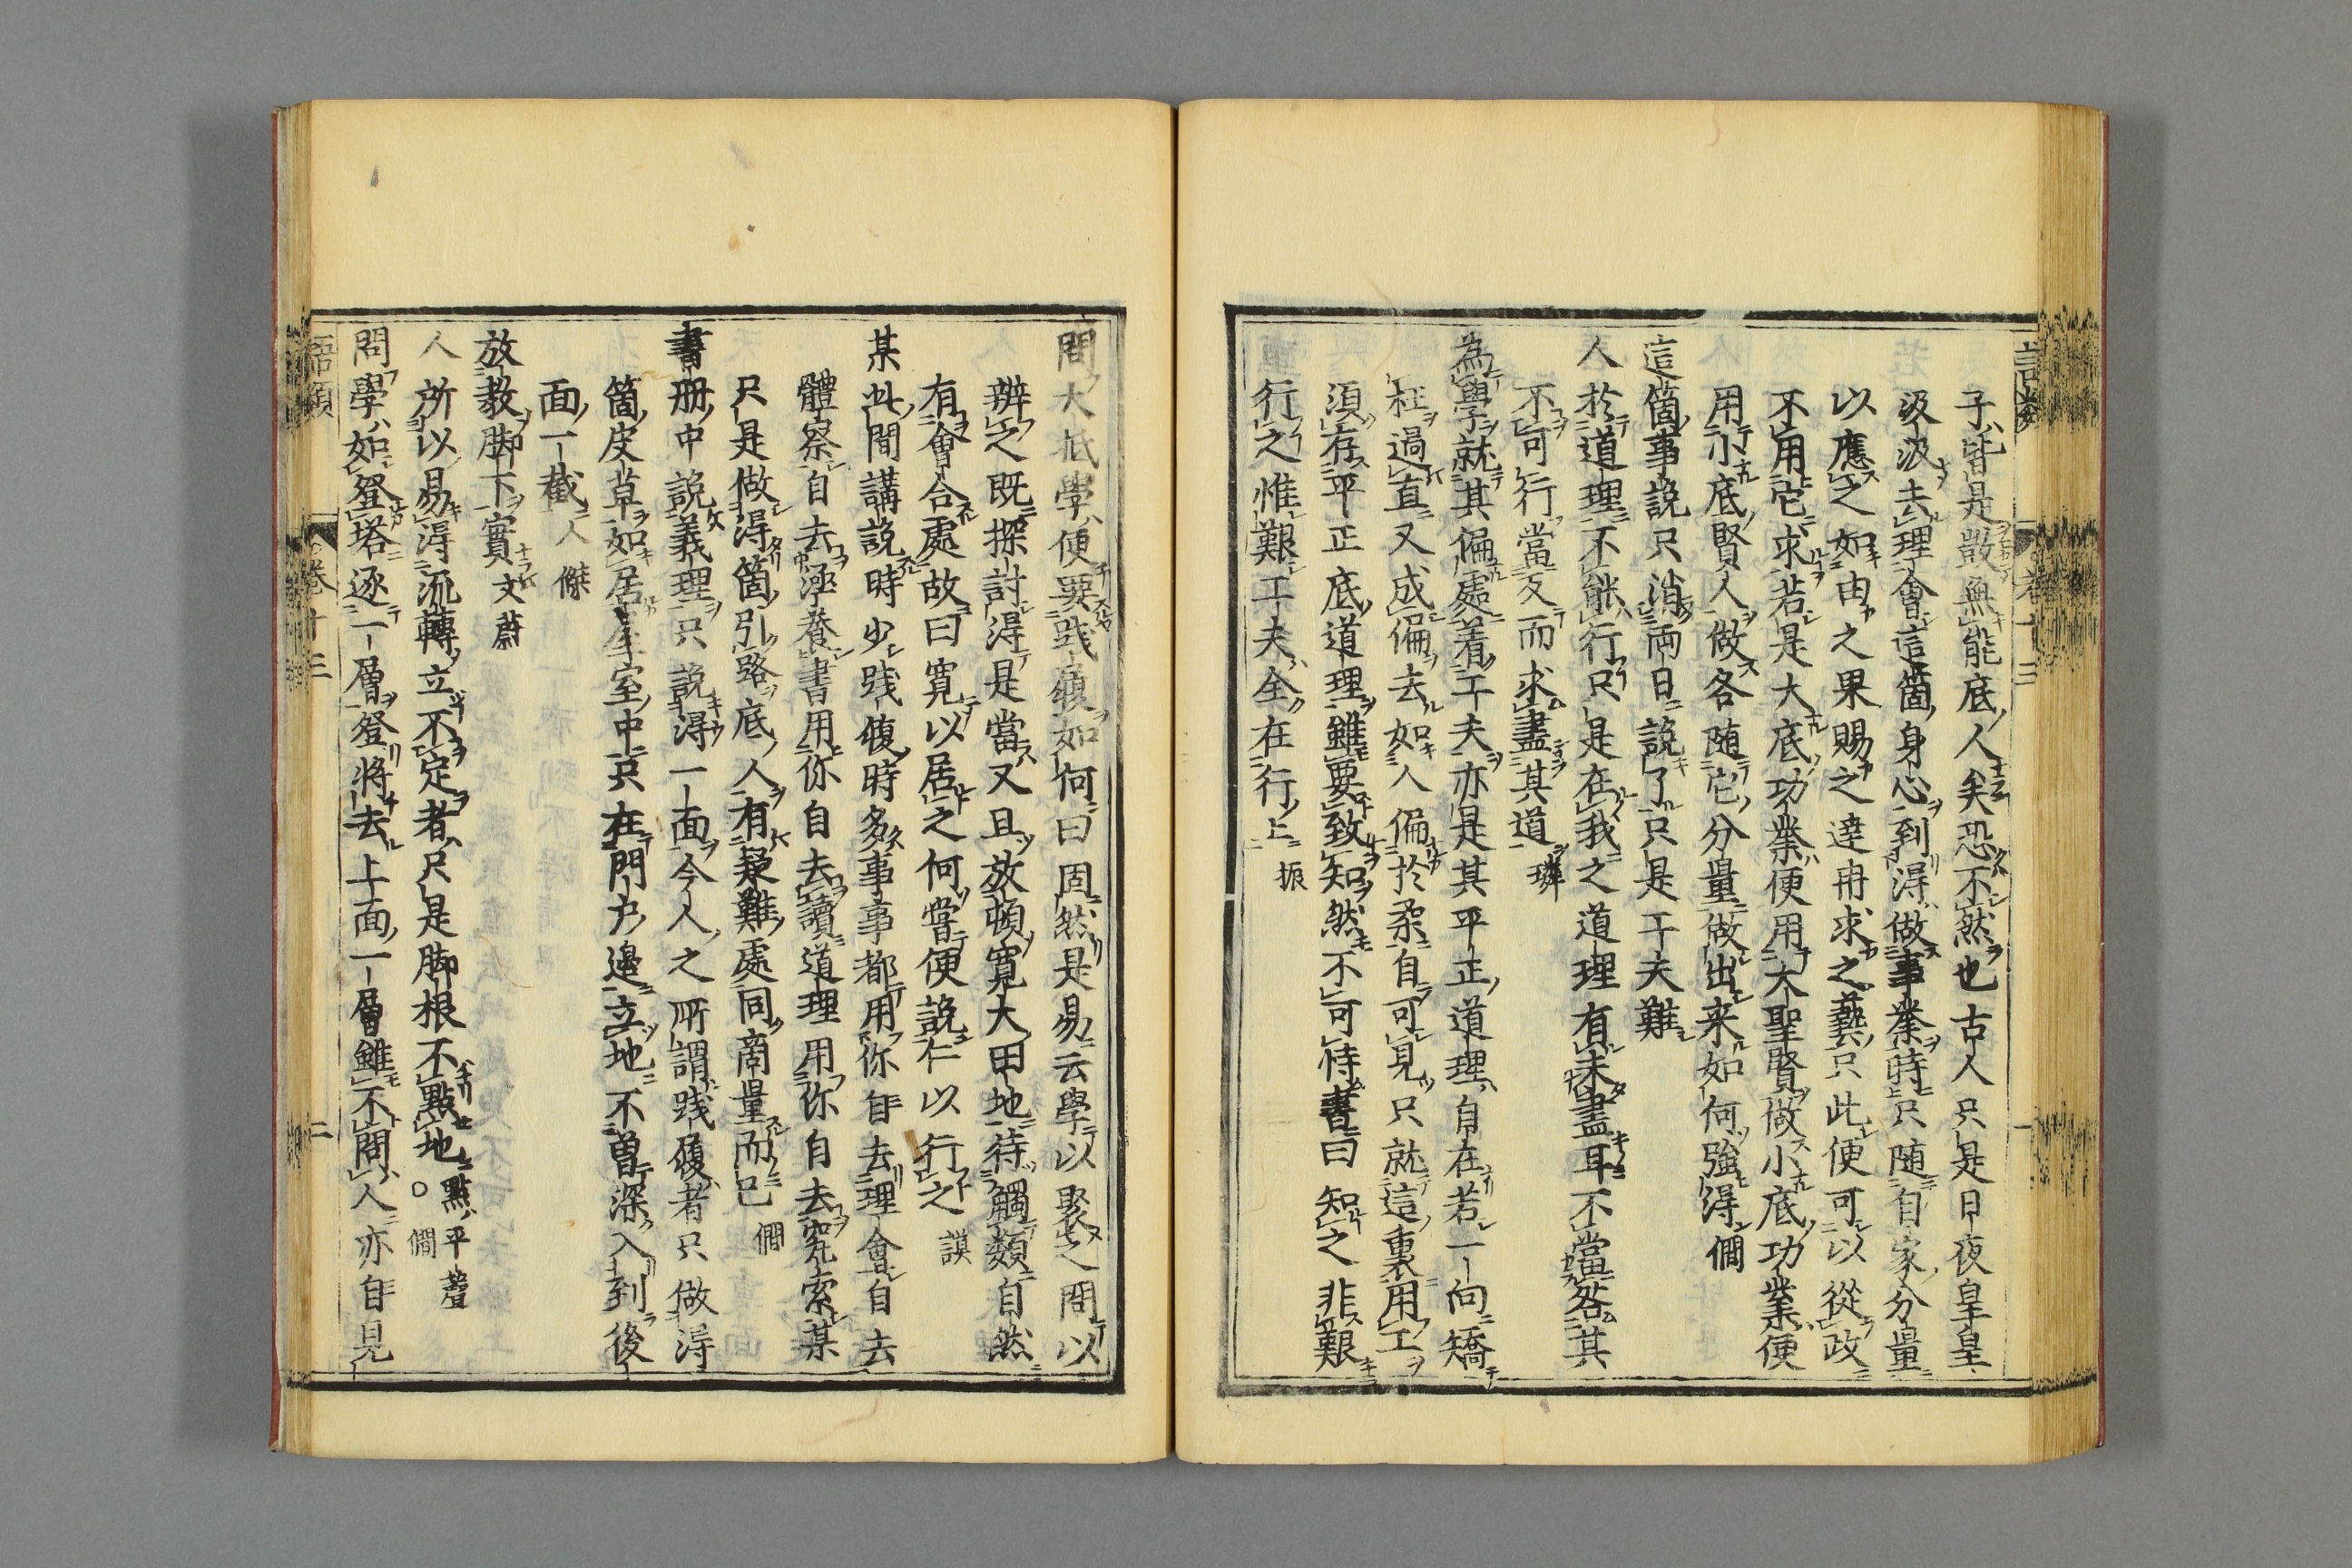 子皆是敳無能底人矣恐不然也古人只是日夜皇皇
汲汲去理會這箇身心到得做事業時只隨自家分量
以應之如由之果賜之達冉求之藝只此便可以從政
不用它求若是大底功業便用大聖賢做小底功業便
用小底賢人做各隨它分量做出来如何強得 僩
這箇事說只消兩日說了只是工夫難
人於道理不能行只是在我之道理有未盡耳不當咎其
不可行當反而求盡其道 璘
為學就其偏處着工夫亦是其平正道理自在若一向矯
枉過直又成偏去如人偏於柔自可見只就這裏用工
須存平正底道理雖要致知然不可恃書曰知之非艱
行之惟艱工夫全在行上 振
問大抵學便要踐履如何曰固然是易云學以聚之問以
辨之既探討得是當又且放頓寬大田地待觸類自然
有會合處故曰寬以居之何嘗便說仁以行之 謨
某此間講說時少踐履時多事事都用你自去理會自去
體察自去涵養書用你自去讀道理用你自去究索某
只是做得箇引路底人有疑難處同商量而已 僩
書册中說義理只說得一面今人之所謂踐履者只做得
箇皮草如居屋室中只在門戶邊立地不曾深入到後
面一截 人傑
放教脚下實 文蔚
人所以易得流轉立不定者只是脚根不點地 點平聲 ○ 僩
問學如登塔逐一層登將去上面一層雖不問人亦自見
語類 卷十三 二